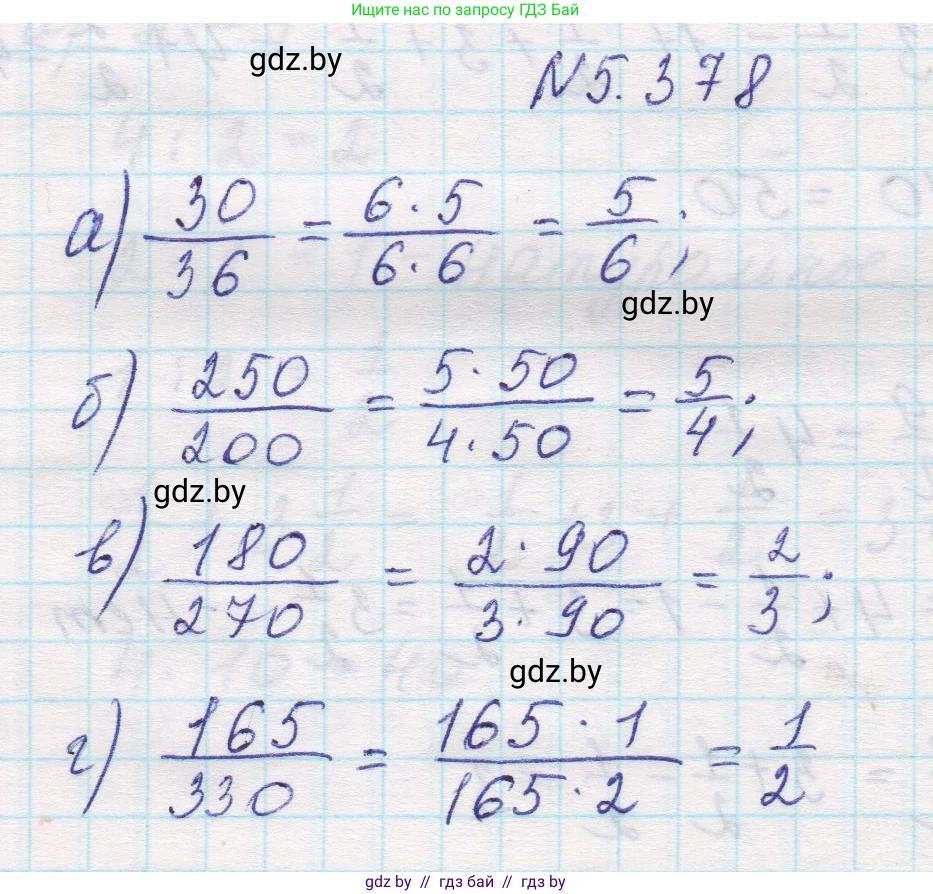 Ищите нас по запросу ГДЗ Бай
gdz.by
N 5.378
а) 30/36 = 6·5/6·6 = 5/6;
gdz.by
б) 250/200 = 5·50/4·50 = 5/4;
gdz.by
в) 180/270 = 2·90/3·90 = 2/3;
gdz.by
г) 165/330 = 165·1/165·2 = 1/2
gdz.by // гдз бай // gdz.by